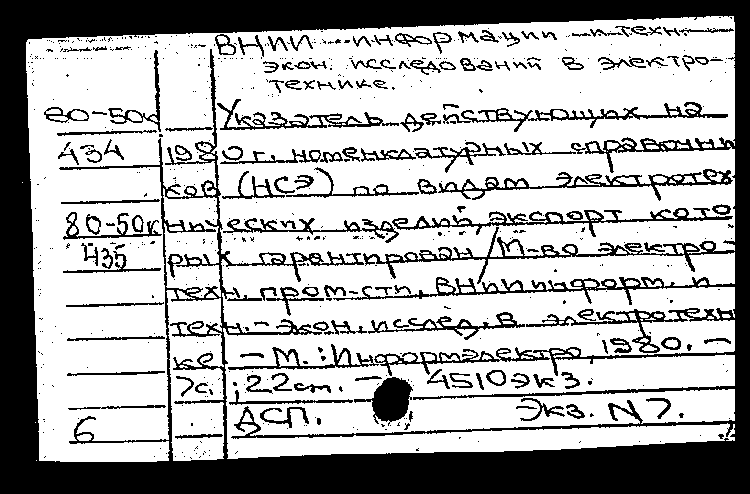 ВНИИ информации и техн.-
экон. исследований в электро-
технике.
80-50к Указатель действующих на
434 1980 г. номенклатурных справочни
ков (НСЭ) по видам электротех
80-50к нических изделий, экспорт кото
435 рых гарантирован / М-во электро-
техн. пром-сти, ВНИИ информ. и
техн.-экон. исслед. в электротехни
ке. - М. : Информэлектро, 1980. -
7с. ; 22 см. - 4510 экз.
ДСП. Экз. N 7.
6